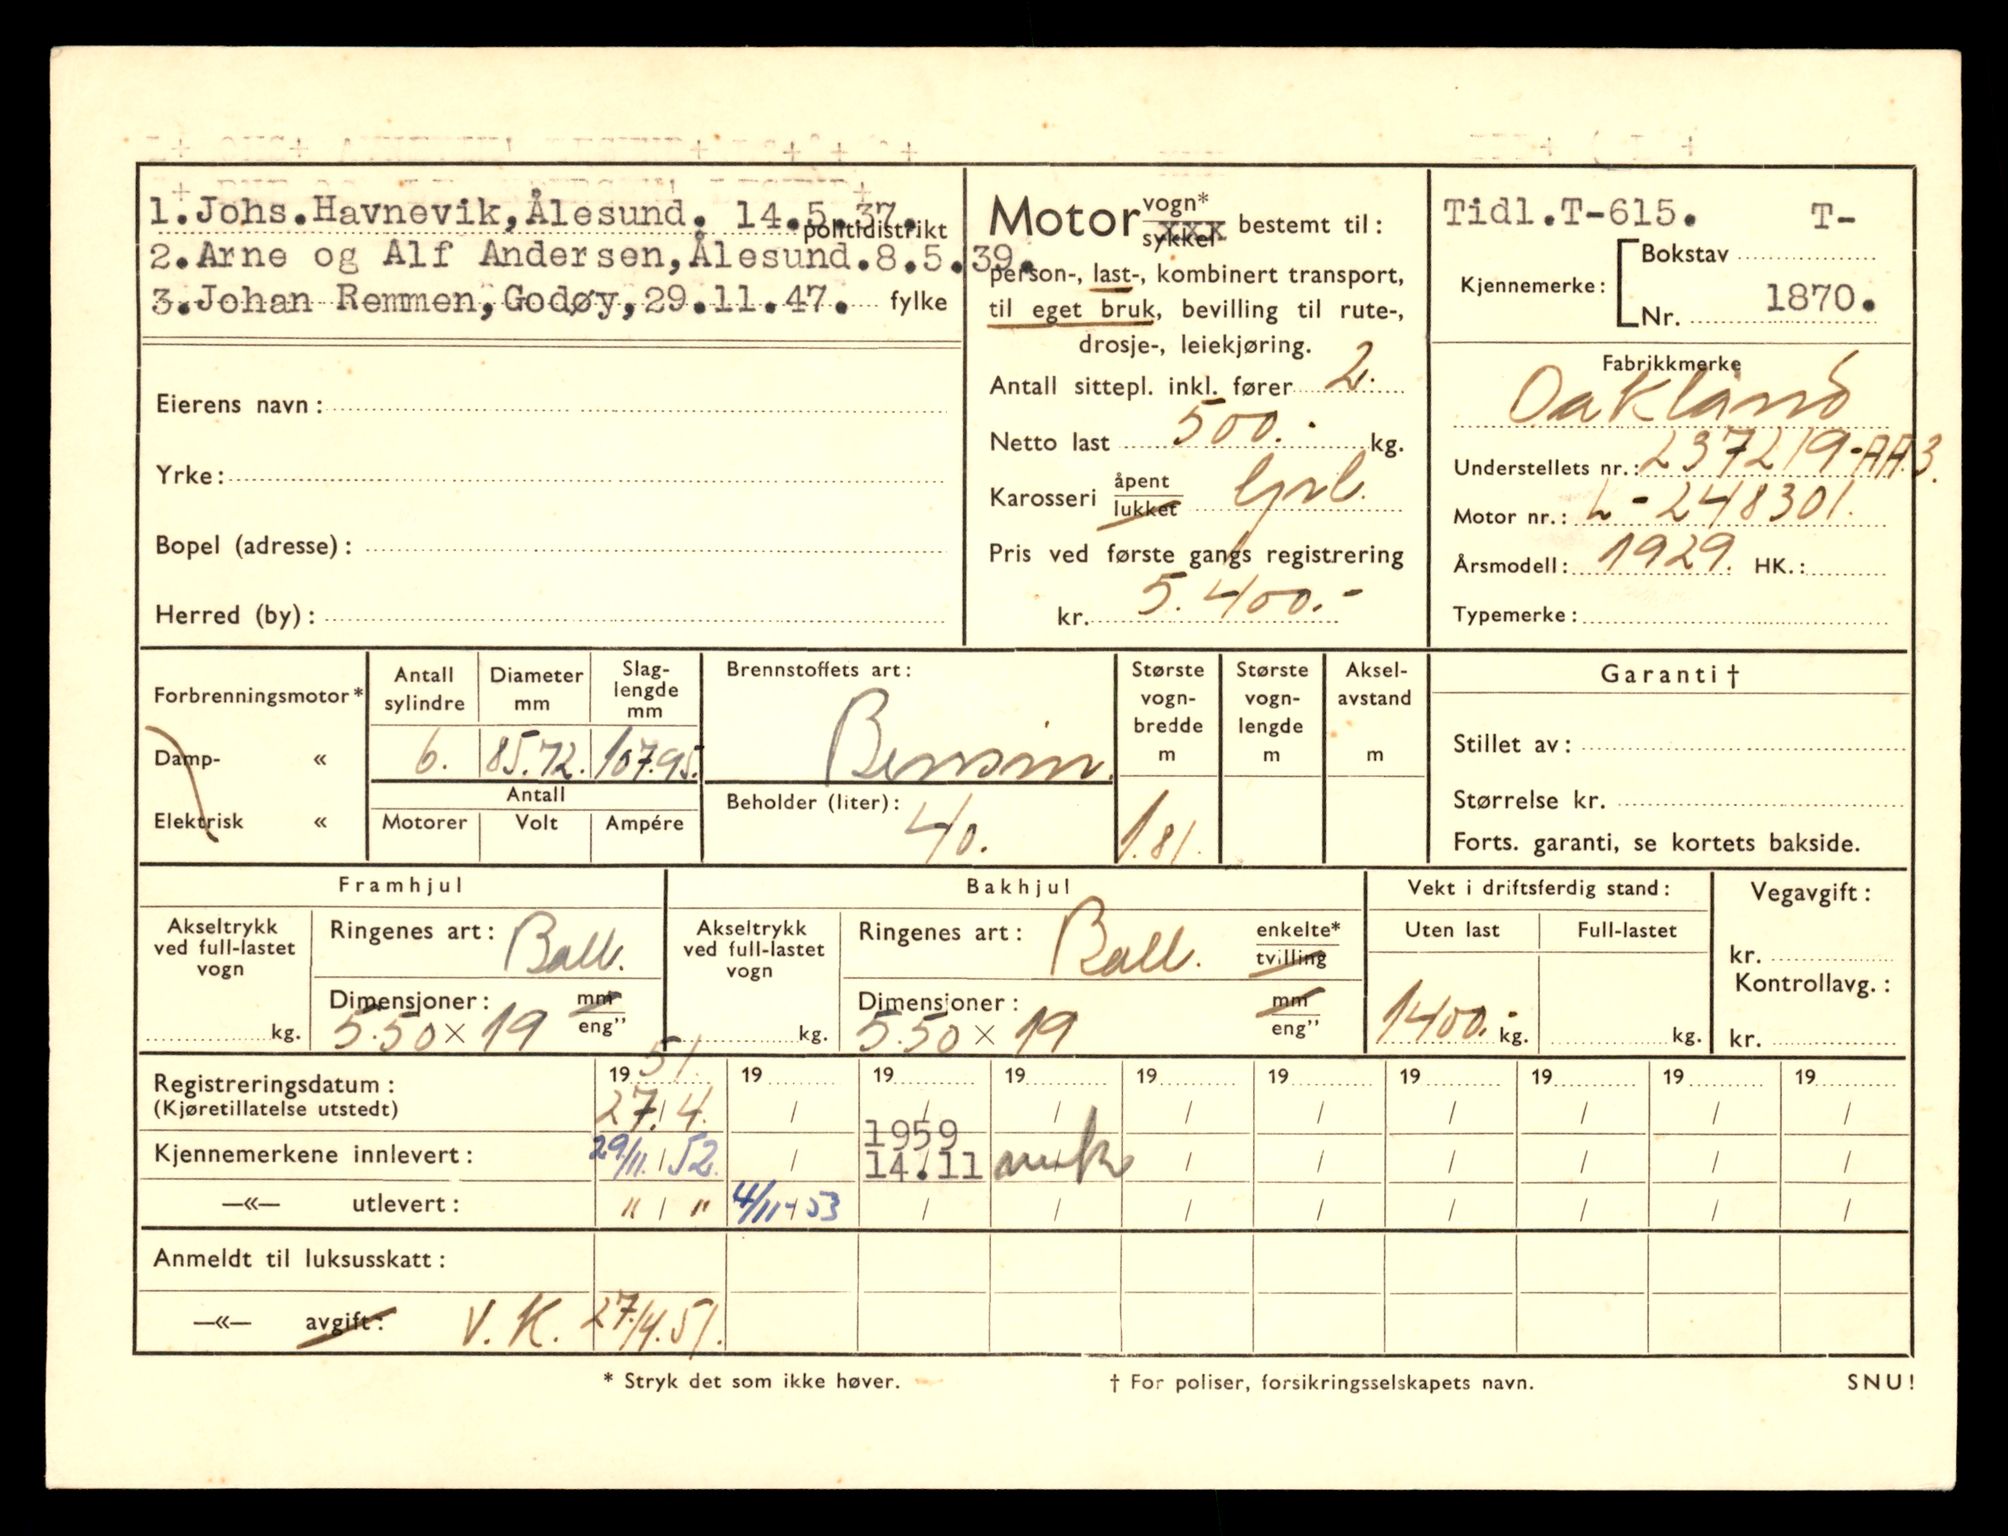 1. Johs. Havnevik, Ålesund. 14.5.37.
politidistrikt
2. Arne og Alf Andersen, Ålesund. 8.5.39.
3. Johan Remmen, Godøy, 29.11.47. fylke
Eierens navn:
Yrke:
Bopel (adresse):
Herred (by):
Motor vogn* sykkel xxx bestemt til:
person-, last-, kombinert transport,
til eget bruk, bevilling til rute-,
drosje-, leiekjøring.
Antall sittepl. inkl. fører 2.
Netto last 500.- kg.
Karosseri åpent lukket
Pris ved første gangs registrering
kr. 5.400.-
Tidl. T-615. T-
Kjennemerke: Bokstav
Nr. 1870.
Fabrikkmerke
Oakland
Understellets nr.: 237219-AA3.
Motor nr.: L-248301.
Årsmodell: 1929. HK.:
Typemerke:
Forbrenningsmotor*
Damp- «
Elektrisk «
Antall sylindre 6.
Diameter mm 85.72.
Slag-lengde mm 107.95.
Antall
Motorer Volt Ampére
Brennstoffets art:
Bensin.
Beholder (liter): 40.
Største vogn-bredde m 1.81.
Største vogn-lengde m
Aksel-avstand m
Garanti†
Stillet av:
Størrelse kr.
Forts. garanti, se kortets bakside.
Framhjul
Akseltrykk ved full-lastet vogn
kg.
Ringenes art: Ball.
Dimensjoner: mm eng"
5.50 × 19
Bakhjul
Akseltrykk ved full-lastet vogn
kg.
Ringenes art: Ball. enkelte* tvilling
Dimensjoner: mm eng"
5.50 × 19
Vekt i driftsferdig stand:
Uten last Full-lastet
1400.- kg. kg.
Vegavgift:
kr.
Kontrollavg.:
kr.
Registreringsdatum: 19 51. 19 19 19 19 19 19 19 19 19
(Kjøretillatelse utstedt) 27./4. / / / / / / / / /
1959
Kjennemerkene innlevert: 29/11. / 52. / 14.11 / / / / / /
—«— utlevert: " / " 4/11-53 / / / / / / / /
Anmeldt til luksusskatt:
—«— avgift: V. K. 27./4.51.
* Stryk det som ikke høver.
† For poliser, forsikringsselskapets navn.
SNU!